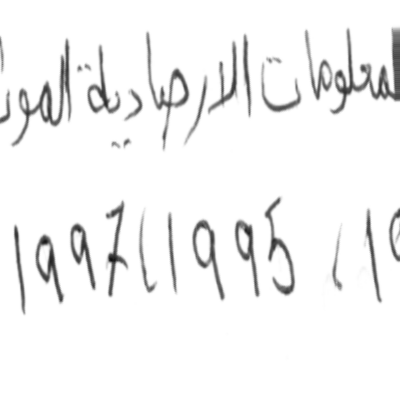 المعلومات الارصادية
1997، 1995،